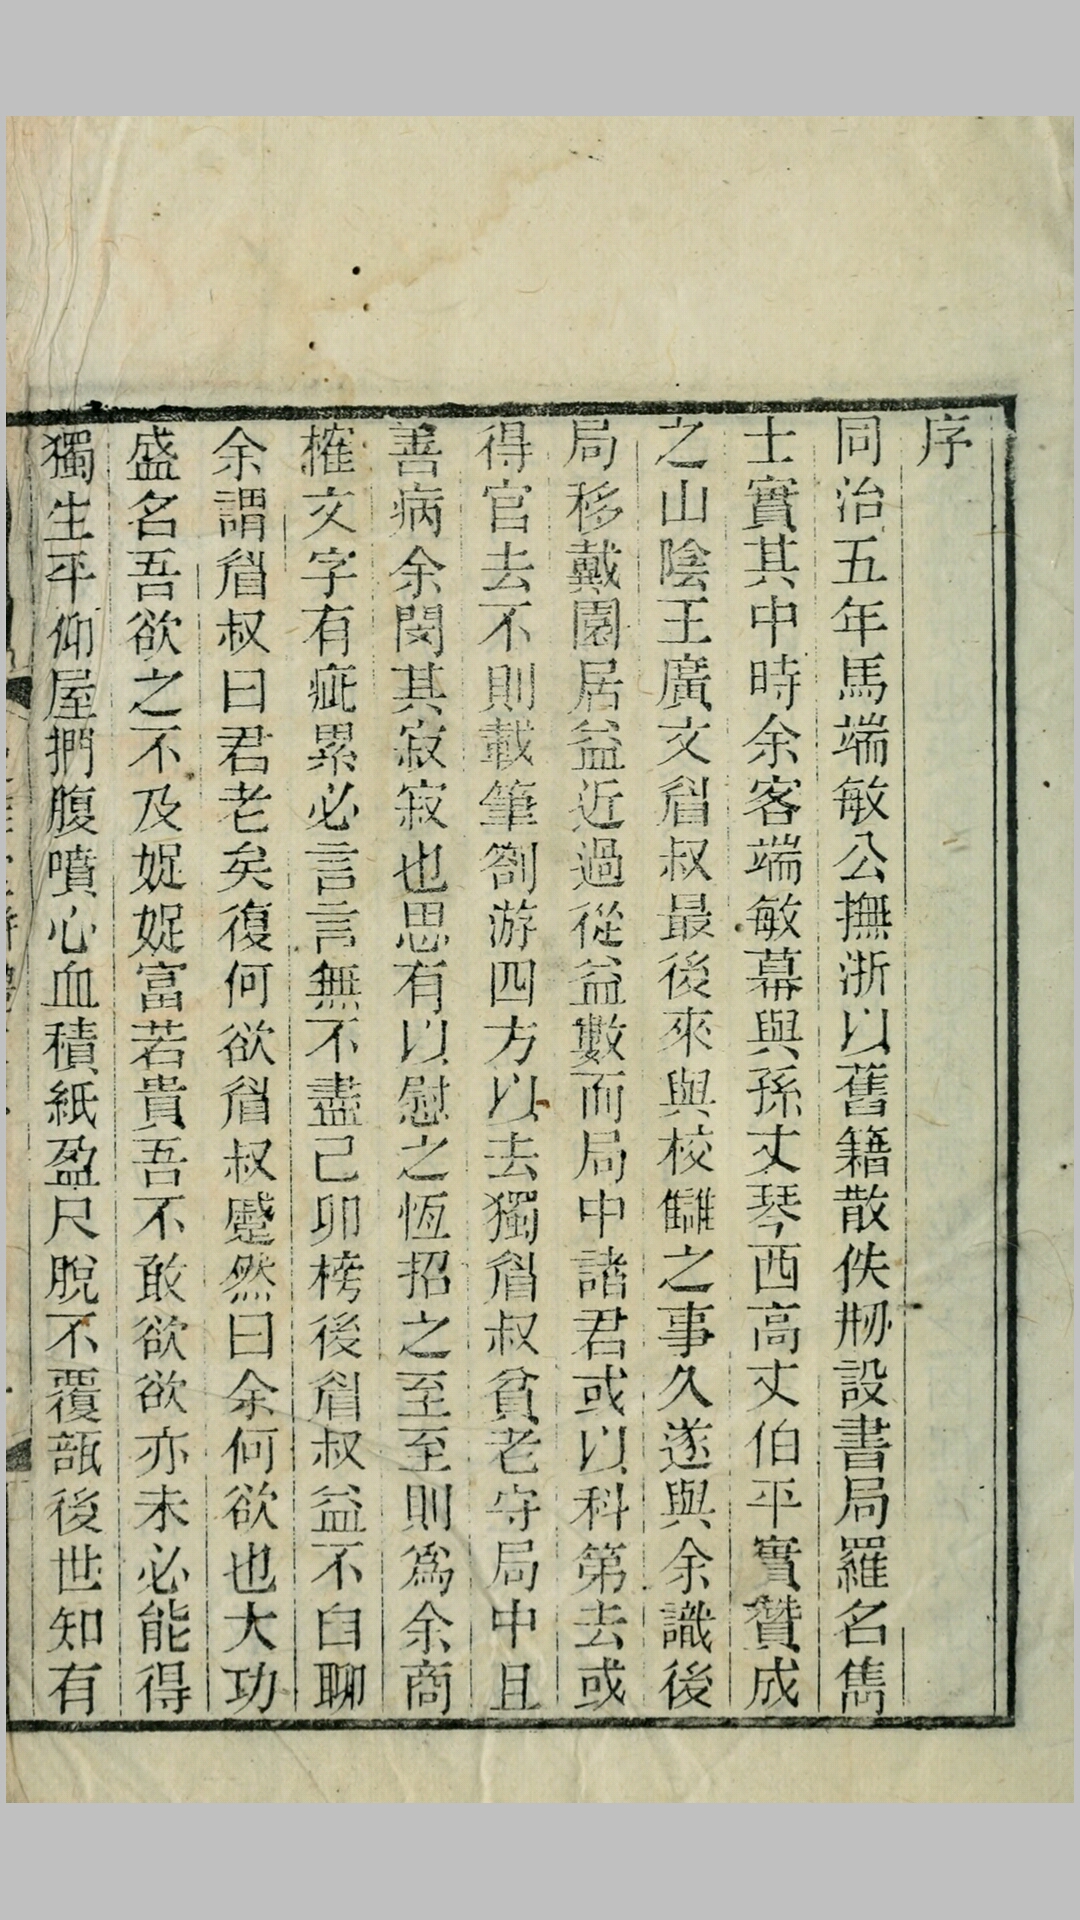 序
同治五年馬端敏公撫浙以舊籍散佚剏設書局羅名雋
士實其中時余客端敏幕與孫丈琴西高丈伯平實贊成
之山陰王廣文眉叔最後來與校讎之事久遂與余識後
局移戴園居益近過從益數而局中諸君或以科第去或
得官去不則載筆劄游四方以去獨眉叔貧老守局中且
善病余閔其寂寂也思有以慰之恆招之至至則爲余商
搉文字有疵累必言言無不盡己卯榜後眉叔益不自聊
余謂眉叔曰君老矣復何欲眉叔蹙然曰余何欲也大功
盛名吾欲之不及娖娖富若貴吾不敢欲欲亦未必能得
獨生平仰屋捫腹噴心血積紙盈尺脫不覆瓿後世知有